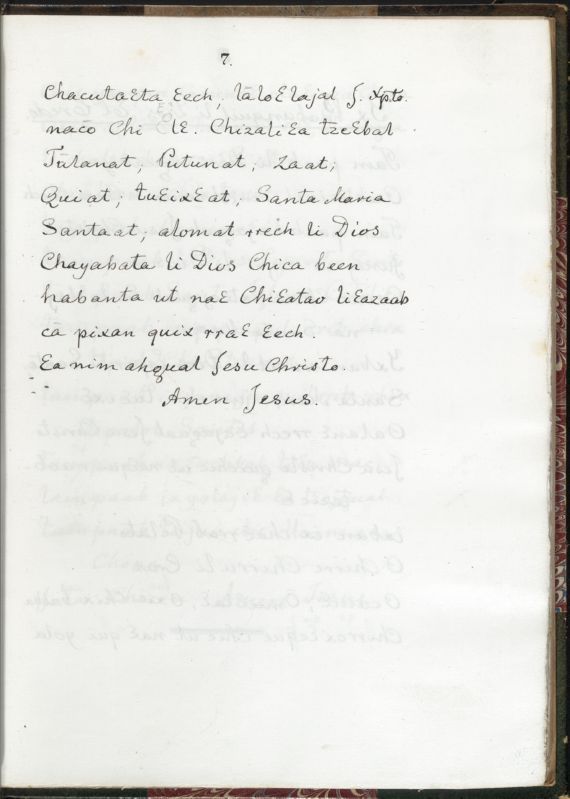 7.
Chacutaɛta ɛech, lāloɛlajal J. xpto.
nacō Chi lɛ. Chizaliɛa tzcɛbal
Tūlanat; Putunat; Zaat;
Quiat; tuɛixɛat; Santa Maria
Santaat; alomat rrech li Dios
Chayabata li Dios Chica been
habanta ut naɛ Chiɛatav liɛazaab
cā pixan quix rraɛ ɛech.
Ea nim ahqual Jesu Christo.
Amen Jesus.